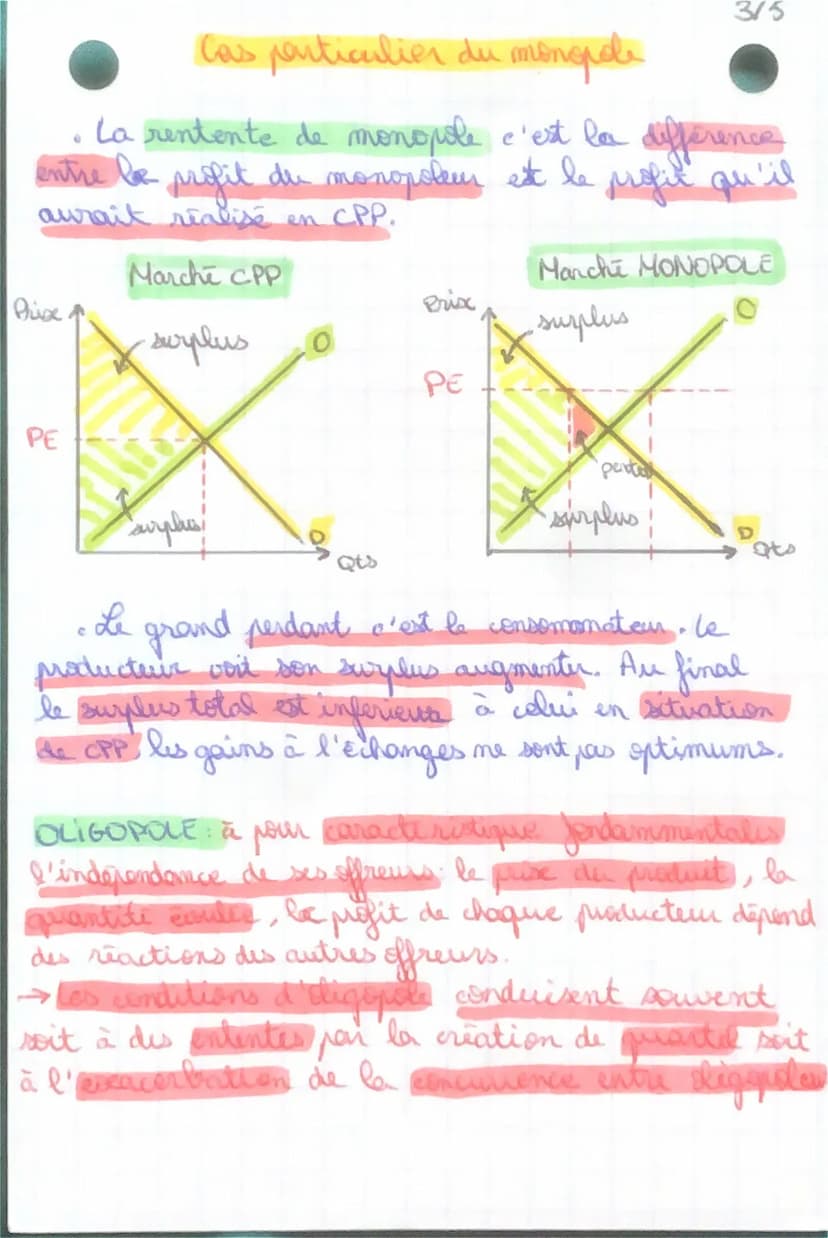 3/5
Cas particulier du monopole
. La rentente de monopole c'est la différence
entre le profit du monopoleur est le profit qu'il
aurait réalisé en CPP.
Marché CPP
Marché MONOPOLE
Prix
surplus
O
PE
surplus
D
Qts
Prix
surplus
O
PE
perte
surplus
D
Qts
. Le grand perdant c'est le consomomateur. Le
producteur voit son surplus augmenter. Au final
le surplus total est inférieur à celui en situation
de CPP les gains à l'échanges ne sont pas optimums.
OLIGOPOLE : à pour caractéristique fondammentales
l'indépendance de ses offreurs : le prix du produit, la
quantité écoulée, le profit de chaque producteur dépend
des réactions des autres offreurs.
→ Les conditions d'oligopole conduisent souvent
soit à des ententes par la création de quartel soit
à l'exacerbation de la concurrence entre oligopoles